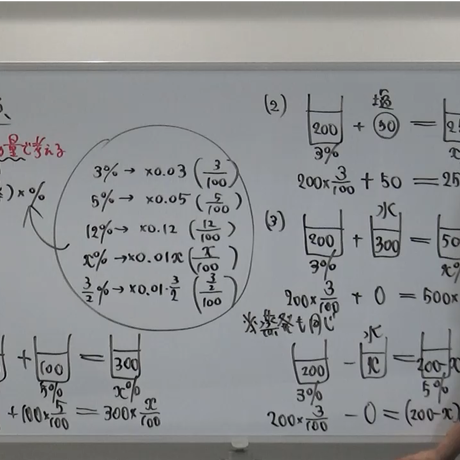 量で考える
)×%
3%→×0.03(3/100)
5%→×0.05(5/100)
12%→×0.12(12/100)
x%→×0.01x(x/100)
3/2%→×0.01・3/2((3/2)/100)
+ 100 = 300
5% x%
+100×5/100=300×x/100
(2) 200 + 塩 50 = 25
3% x
200×3/100+50=25
(3) 200 + 水 300 = 50
3% x%
200×3/100+0=500×
※蒸発も同じ
200 - 水 x = 200-x
3% 5%
200×3/100-0=(200-x)